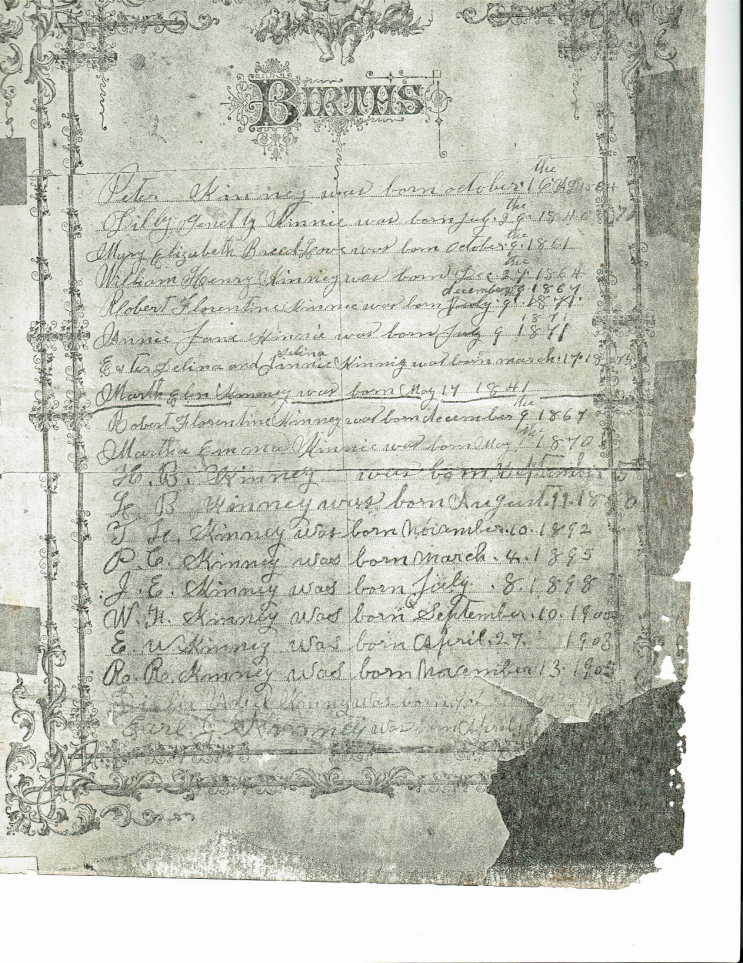 BIRTHS
the
Peter Kinney was born october 16
the
was born July 29 1840
the
Myry Elizabeth Breed Lowe was born October 9 1861
the
William Henry Kinney was born Dec 27 1864
december 9 1867
Robert Florentine Kinnie was born July 9 1871
1871
Annie Jane Kinnie was born July 9 1871
Selina
Ester Selina and Finnie Kinnie was born march 17 18
Marth Elen Kinney was born May 17 1841
the
Robert Florentine Kinney was born december 9 1867
the
Martha Emma Kinnie was born May 1870
H. B. Kinney was born September
L B Kinney was born August 11 18
T. H. Kinney was born November 10. 1892
P. C. Kinney was born march. 4. 1895
J. E. Kinney was born July. 8. 1898
W. H. Kinney was born September. 10. 1900
E. W Kinney was born April. 27. 1903
R. R. Kinney was born November 13. 1905
was born
Earl. J. Kinney was born April